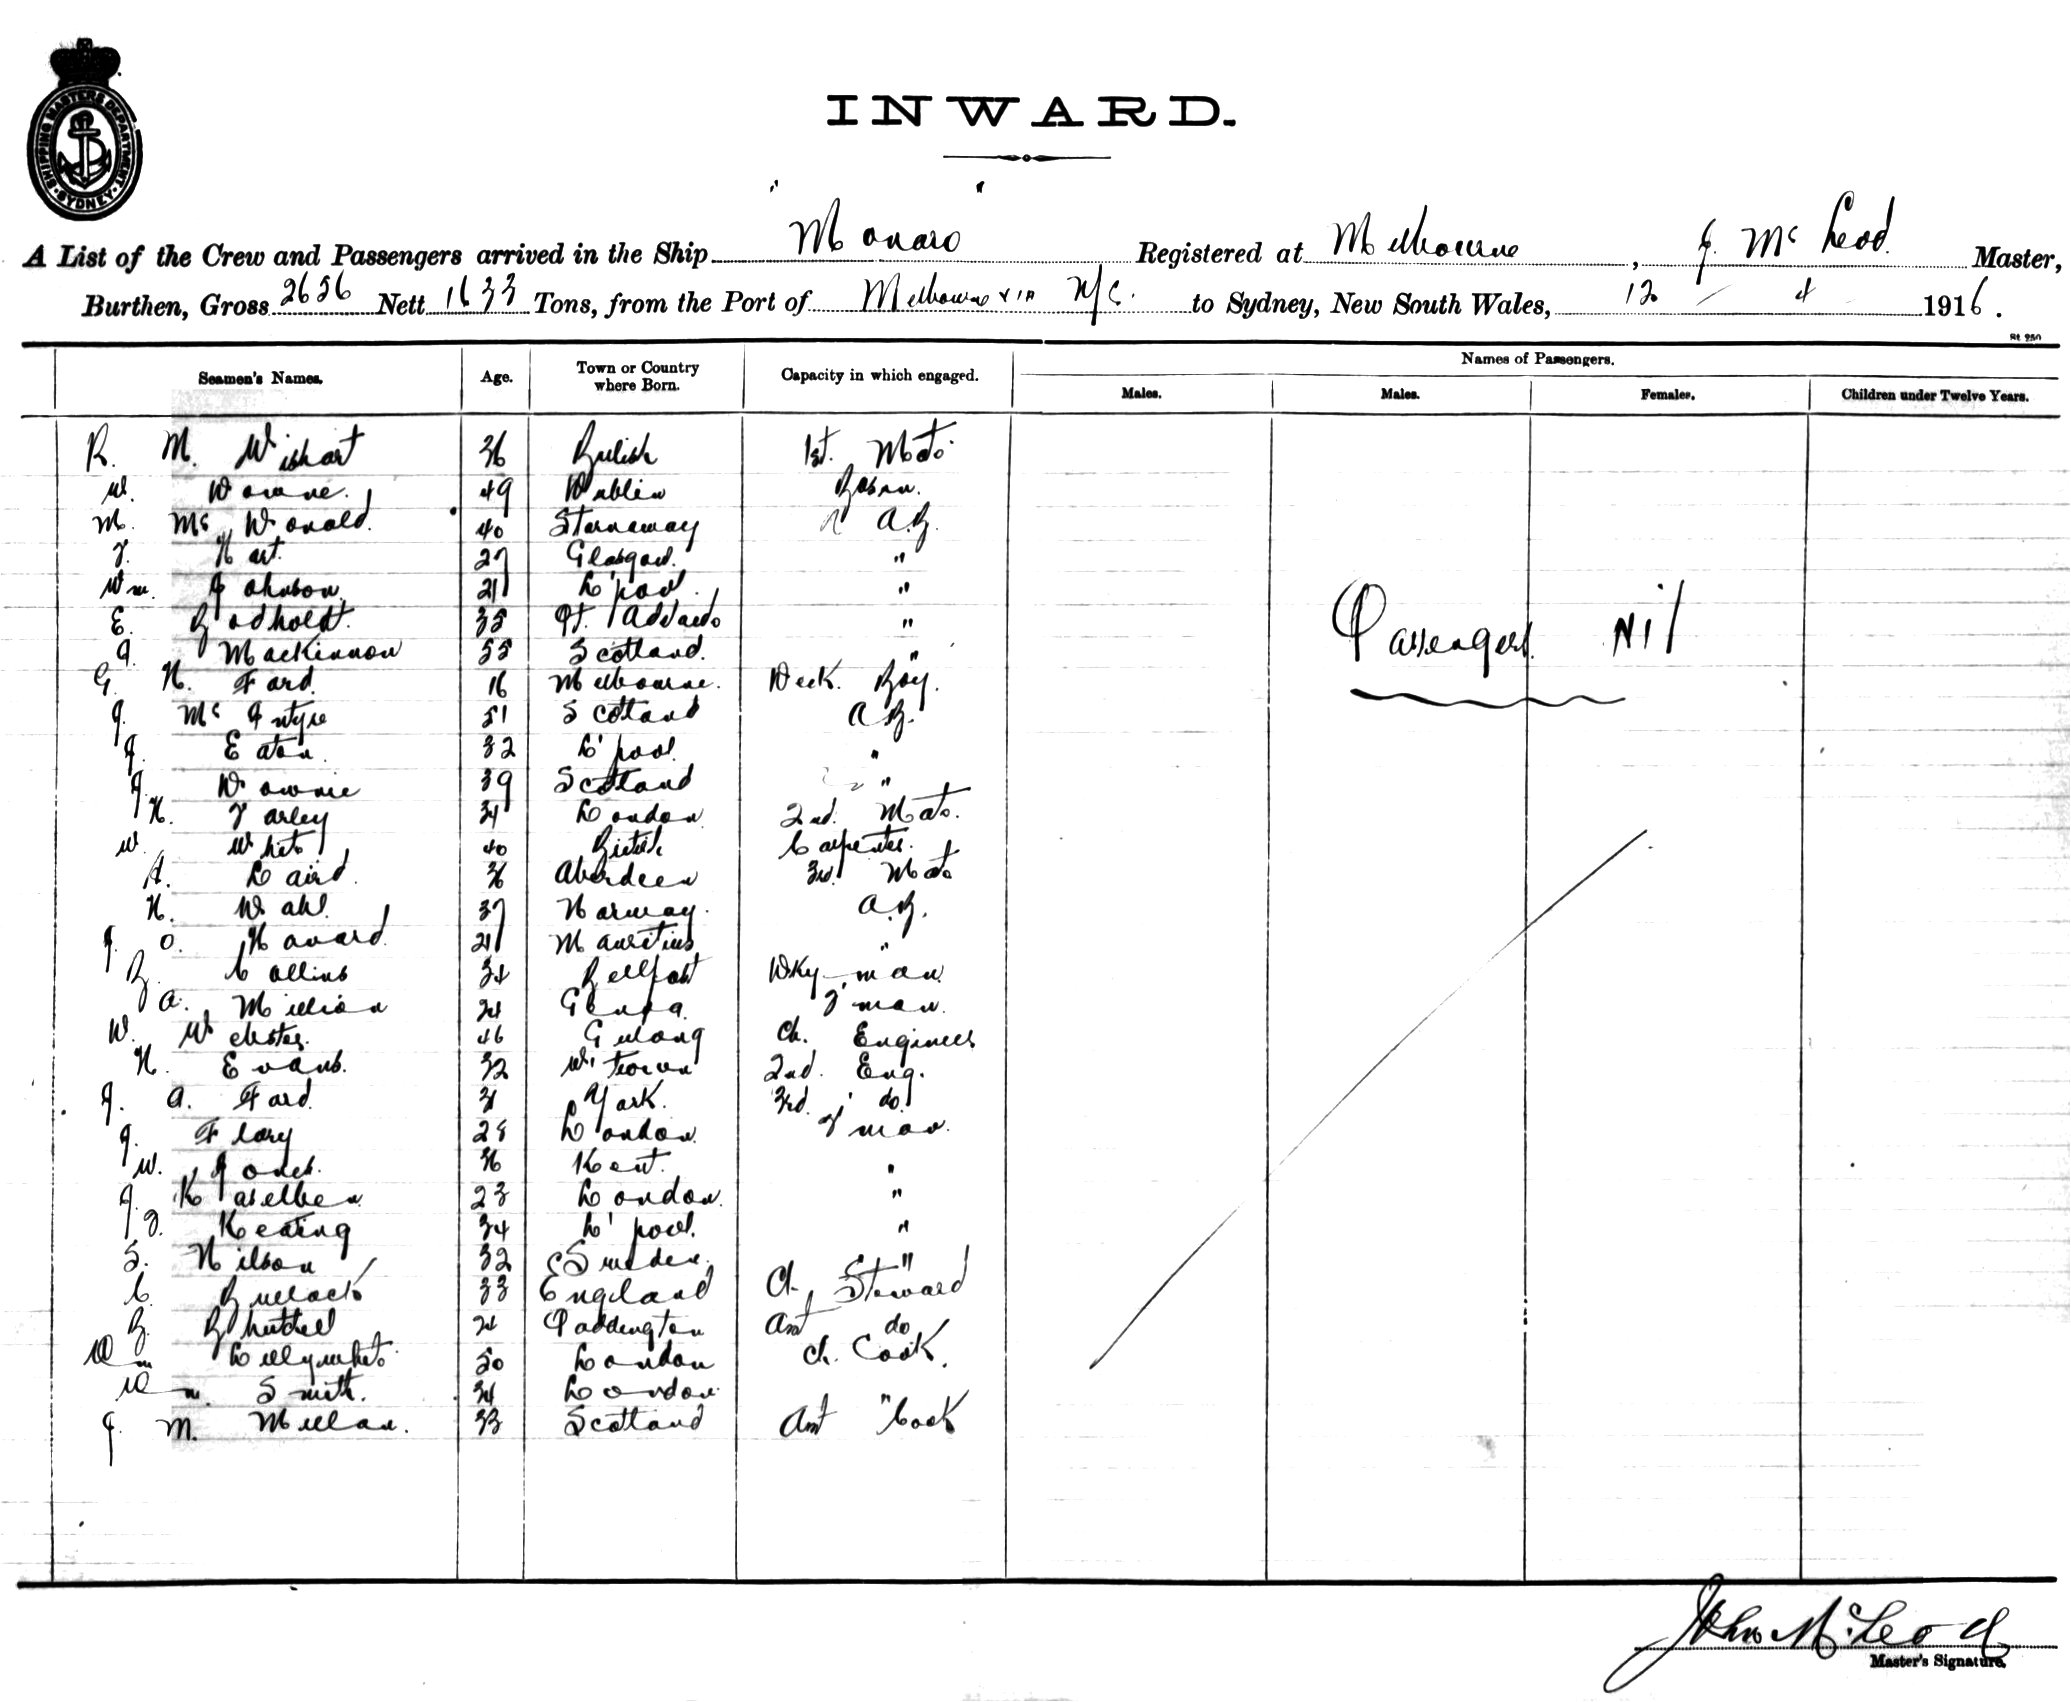 SHIPPING MASTERS DEPARTMENT SYDNEY
INWARD.
"Monaro"
A List of the Crew and Passengers arrived in the Ship Monaro Registered at Melbourne, J. Mc Leod Master,
Burthen, Gross 2656 Nett 1633 Tons, from the Port of Melbourne via N/C. to Sydney, New South Wales, 12 / 4 1916.
St 250
Seamen's Names. Age. Town or Country where Born. Capacity in which engaged. Names of Passengers.
Males. Males. Females. Children under Twelve Years.
R. M. Wishart 36 British 1st. Mate
W. Downe. 49 Dublin Bosun.
M. Mc Donald. 40 Stornaway A.B.
T. Hart. 27 Glasgow. "
Wm. Johnson. 21 L'pool. "
E. Bodholdt. 35 Pt. Adelaide "
A. MacKinnon 55 Scotland. "
G. H. Ford. 16 Melbourne. Deck Boy.
J. Mc Intyre 51 Scotland A.B.
J. Eaton. 32 L'pool. "
J. Downie 39 Scotland "
H. Varley 34 London 2nd. Mate.
W. White 40 British Carpenter.
A. Laird. 36 Aberdeen 3rd. Mate
H. Dahl. 37 Norway. A.B.
J. O. Havard 21 Mauritius "
B. Collins 34 Bellfast Dky-man
A. Million 24 Genoa. F'man.
W. Webster. 46 Geelong Ch. Engineer
H. Evans. 32 W'town 2nd. Eng.
J. A. Ford. 31 York. 3rd. do.
J. Flory 28 London. F'man.
W. Jones. 36 Kent. "
J. Kaselben 23 London. "
J. Keating 34 L'pool. "
S. Nilson 32 Sweden. "
C. Bullock 33 England Ch. Steward
B. Bhuttell 24 Paddington Asst do
Wm Lillywhite 50 London Ch. Cook.
Wm. Smith. 34 London. "
J. M. Millan. 33 Scotland Asst Cook
Passengers Nil
John McLeod
Master's Signature.